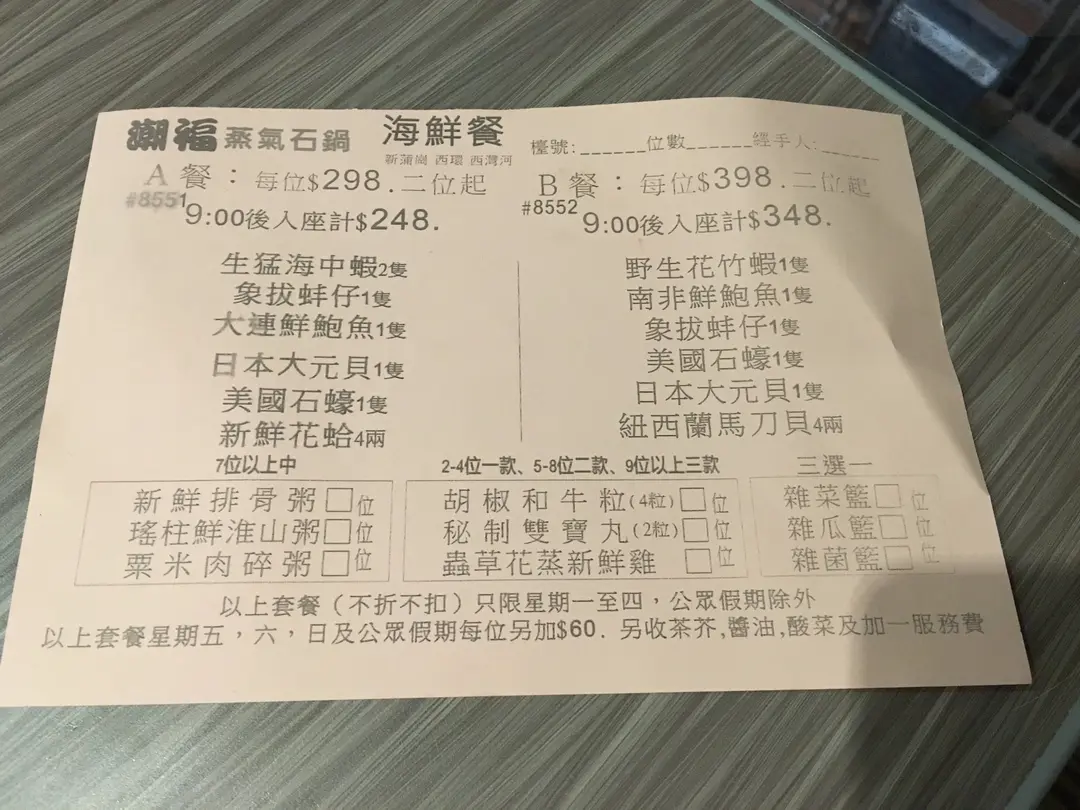 潮福 蒸氣石鍋 海鮮餐
新蒲崗 西環 西灣河
檯號:______位數______經手人:______
A餐：每位$298.二位起
#8551
9:00後入座計$248.
生猛海中蝦2隻
象拔蚌仔1隻
大連鮮鮑魚1隻
日本大元貝1隻
美國石蠔1隻
新鮮花蛤4兩
B餐：每位$398.二位起
#8552
9:00後入座計$348.
野生花竹蝦1隻
南非鮮鮑魚1隻
象拔蚌仔1隻
美國石蠔1隻
日本大元貝1隻
紐西蘭馬刀貝4兩
7位以上中
新鮮排骨粥□位
瑤柱鮮淮山粥□位
粟米肉碎粥□位
2-4位一款、5-8位二款、9位以上三款
胡椒和牛粒(4粒)□位
秘制雙寶丸(2粒)□位
蟲草花蒸新鮮雞 □位
三選一
雜菜籃□位
雜瓜籃□位
雜菌籃□位
以上套餐（不折不扣）只限星期一至四，公眾假期除外
以上套餐星期五，六，日及公眾假期每位另加$60. 另收茶芥,醬油,酸菜及加一服務費